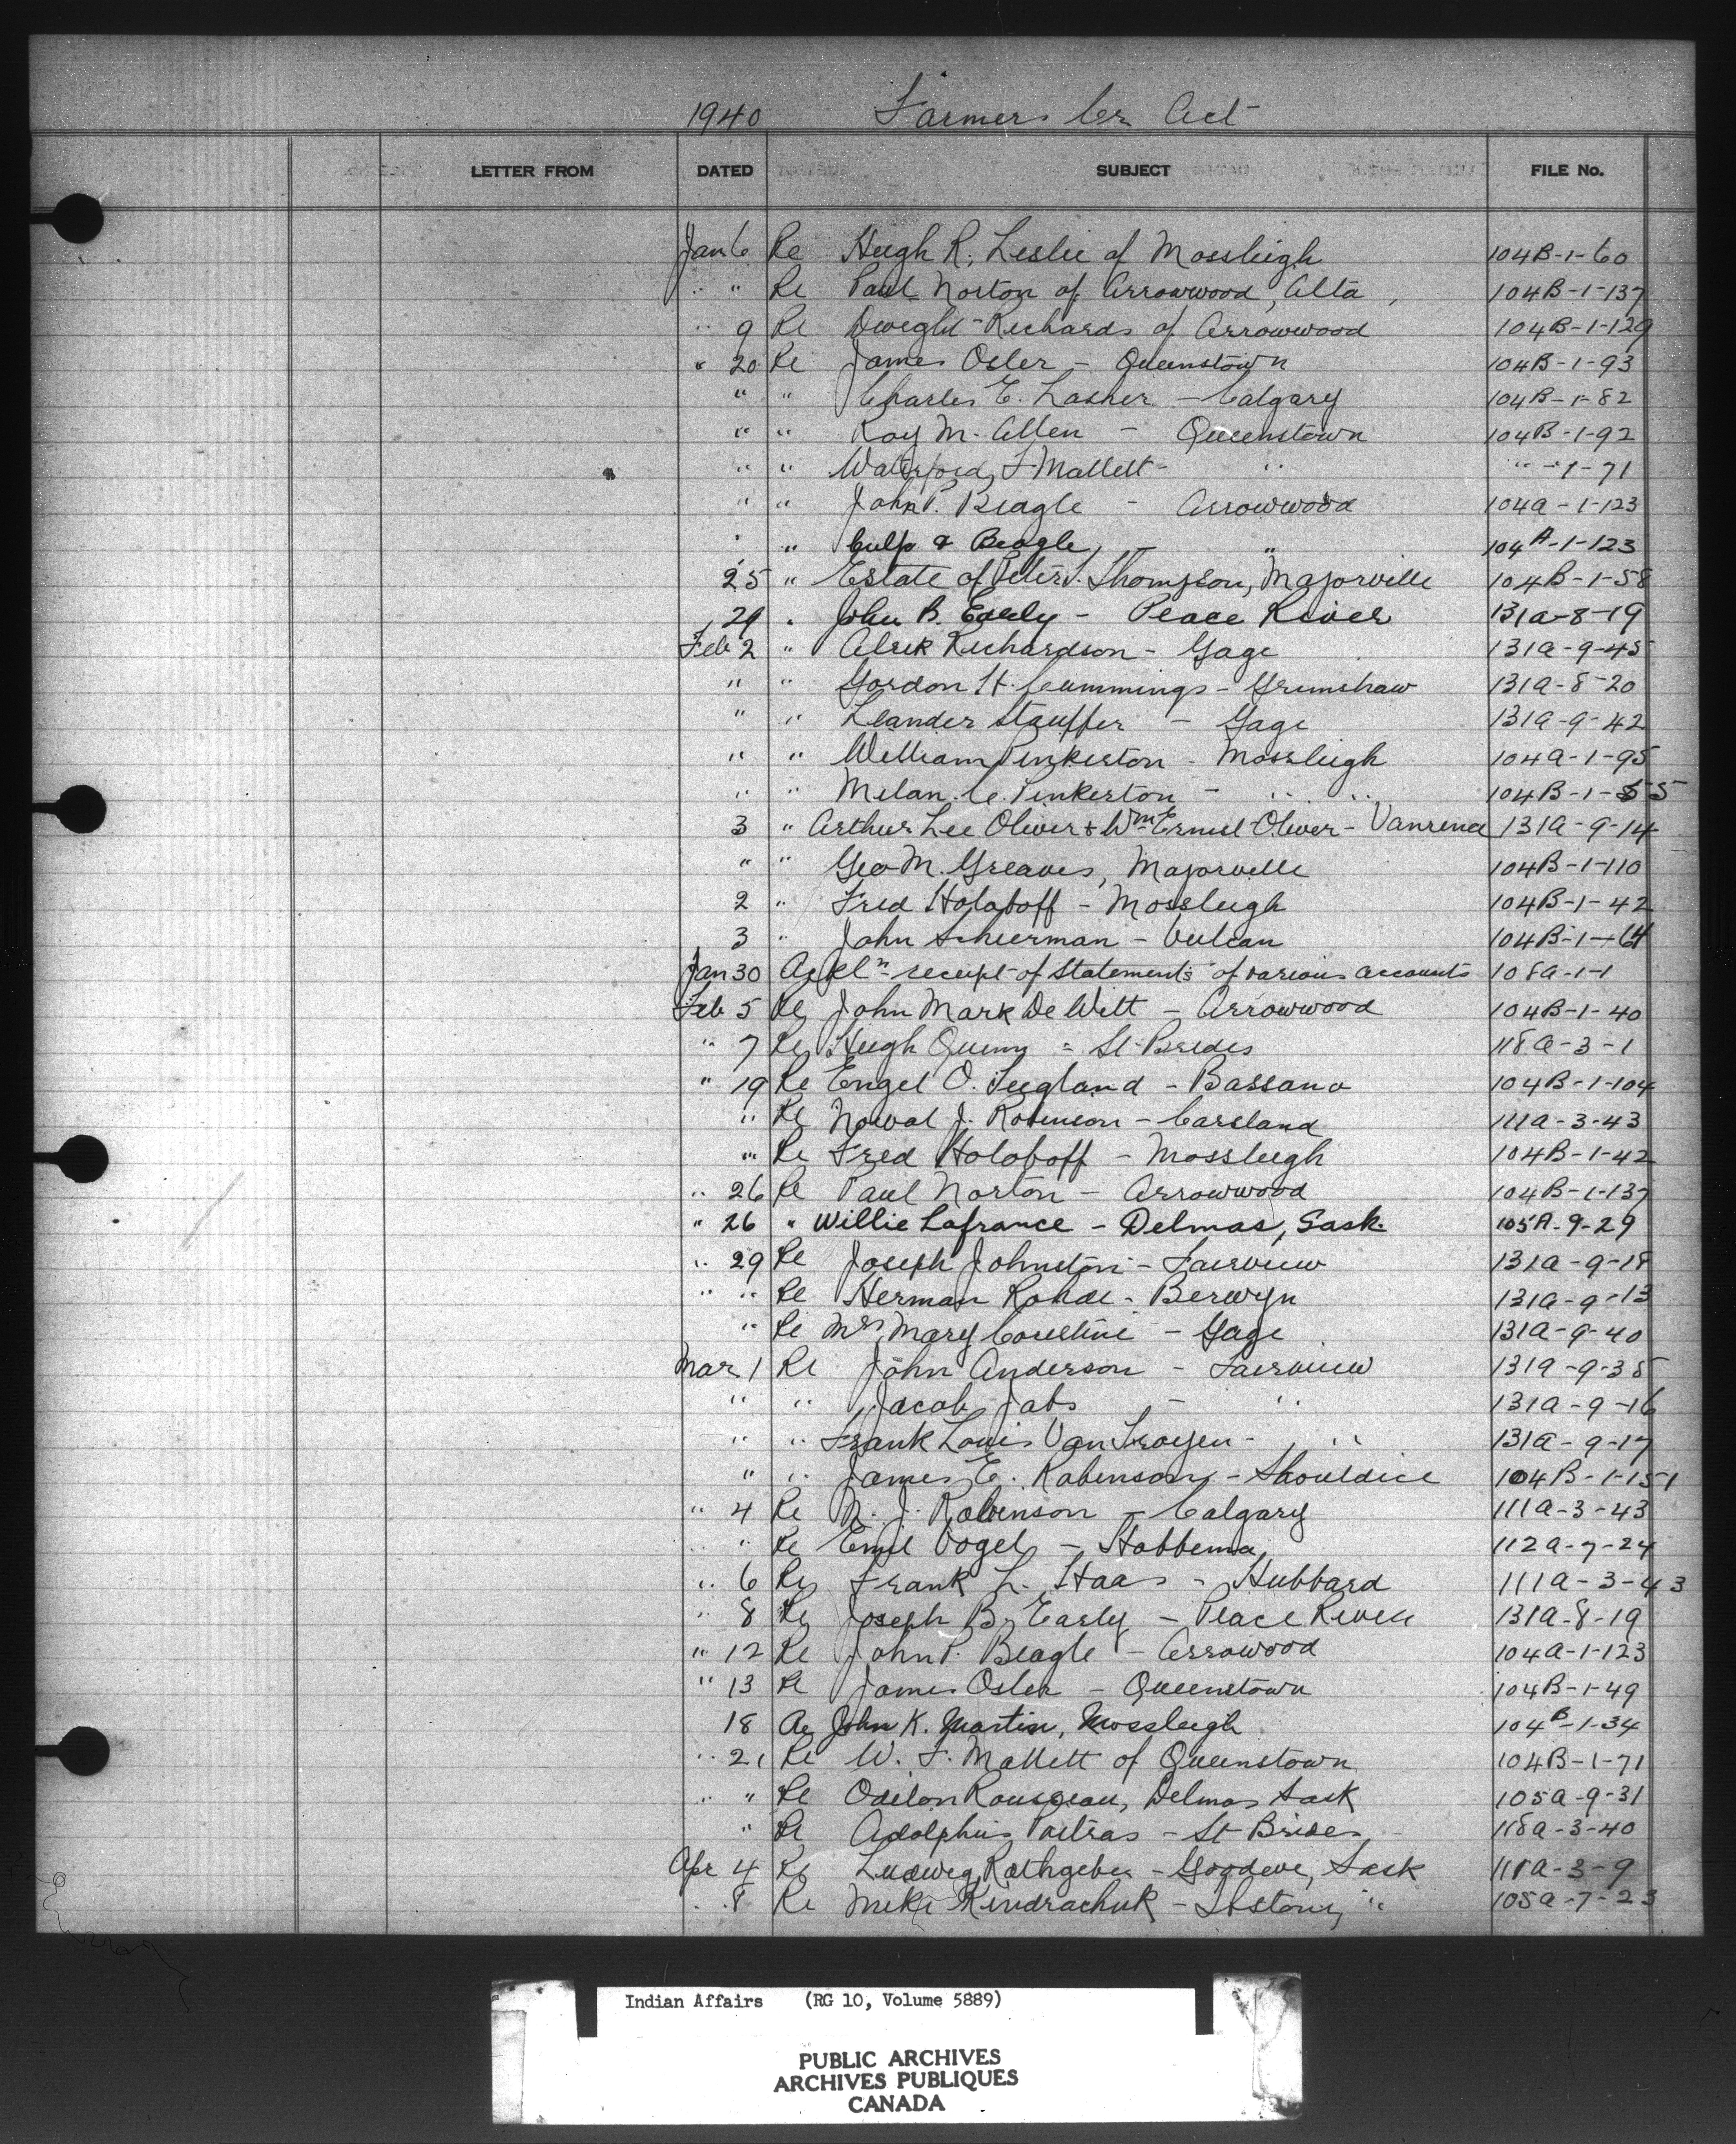 1940 Farmers Cr. Act
LETTER FROM DATED SUBJECT FILE No.
Jan 6 Re Hugh R. Leslie of Mossleigh 104B-1-60
" " Re Paul Norton of Arrowwood, Alta, 104B-1-137
" 9 Re Dwight Richards of Arrowwood 104B-1-129
" 20 Re James Osler - Queenstown 104B-1-93
" " Charles E. Lasher - Calgary 104B-1-82
" " Roy M. Allen - Queenstown 104B-1-92
" " F Mallett - " " -1-71
" " John P. Beagle - Arrowwood 104A-1-123
" " Culp & Beagle, - " 104A-1-123
25 " Estate of Peter Thompson, Majorville 104B-1-58
29 " John B. Early - Peace River 131A-8-19
Feb 2 " Richardson - Gage 131A-9-45
" " Gordon H. Cummings - Grimshaw 131A-8-20
" " Leander Stauffer - Gage 131A-9-42
" " William Pinkerton - Mossleigh 104A-1-95
" " Milan C. Pinkerton - " " 104B-1-55
3 " Arthur Lee Oliver & Wm Ernest Oliver - Vanrena 131A-9-14
" " Geo M. Greaves, Majorville 104B-1-110
2 " Fred Holoboff - Mossleigh 104B-1-42
3 " John Schuerman - Vulcan 104B-1-64
Jan 30 Ackln receipt of Statements of various accounts 108A-1-1
Feb 5 Re John Mark DeWitt - Arrowwood 104B-1-40
" 7 Re Hugh Quinn - St Brides 118A-3-1
" 19 Re Engel O. - Bassano 104B-1-104
" Re Noval J. Robinson - Carsland 111A-3-43
" Re Fred Holoboff - Mossleigh 104B-1-42
" 26 Re Paul Norton - Arrowwood 104B-1-137
" 26 " Willie Lafrance - Delmas, Sask. 105A-9-29
" 29 Re Joseph Johnston - Fairview 131A-9-18
" " Re Herman Rohde - Berwyn 131A-9-13
" Re Mrs Mary - Gage 131A-9-40
Mar 1 Re John Anderson - Fairview 131A-9-38
" " Jacob Jabs - " 131A-9-16
" " Frank Louis Van Troyen - " 131A-9-17
" " James E. Robinson - Shouldice 104B-1-151
" 4 Re N. J. Robinson - Calgary 111A-3-43
" Re Emil Vogel - Hobbema 112A-7-24
" 6 Re Frank L. Haas - Hubbard 111A-3-43
" 8 Re Joseph B. Early - Peace River 131A-8-19
" 12 Re John P. Beagle - Arrowood 104A-1-123
" 13 Re James Osler - Queenstown 104B-1-49
18 Re John K. Martin, Mossleigh 104B-1-34
" 21 Re W. F. Mallett of Queenstown 104B-1-71
" " Re Odilon Rousseau, Delmas Sask 105A-9-31
" Re Adolphus Poitras - St Brides 118A-3-40
Apr 4 Re Ludwig Rathgeber - Goodeve, Sask 111A-3-9
" 8 Re Mike Kindrachuk - " 105A-7-23
Indian Affairs (RG 10, Volume 5889)
PUBLIC ARCHIVES
ARCHIVES PUBLIQUES
CANADA